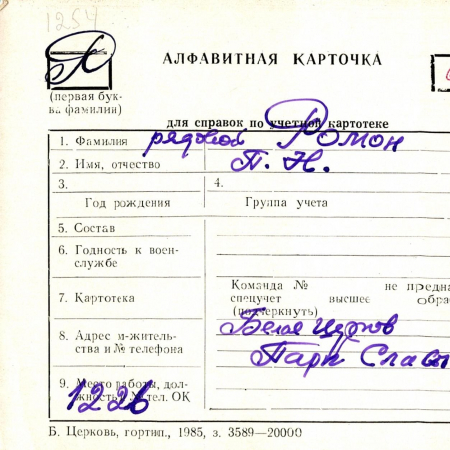 1254
АЛФАВИТНАЯ КАРТОЧКА
(первая бук-
ва фамилии)
для справок по учетной картотеке
1. Фамилия рядовой Ромон
2. Имя, отчество П. Н.
3. 4.
Год рождения Группа учета
5. Состав
6. Годность к воен-
службе
Команда № не предна
7. Картотека спецучет высшее обра
(подчеркнуть)
8. Адрес м-житель- Белая Церков
ства и № телефона Парк Славы
9. Место работы, дол-
жность, № тел. ОК
122б
Б. Церковь, гортип., 1985, з. 3589—20000